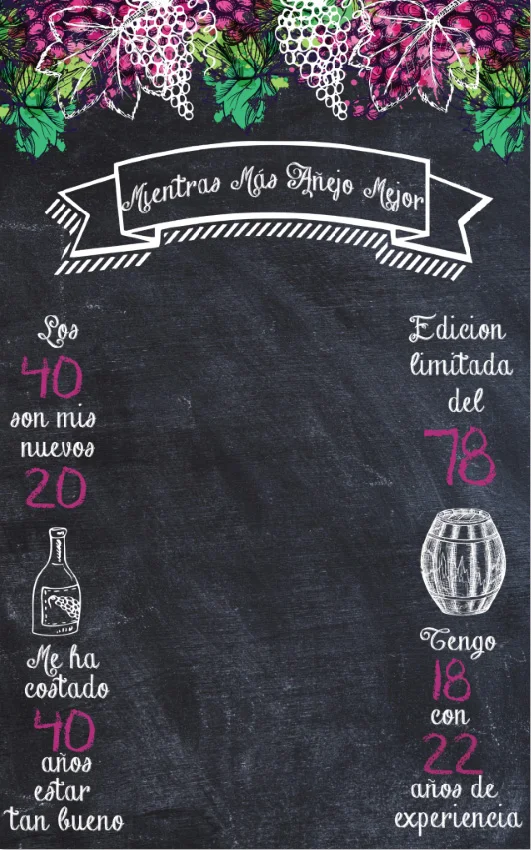 Mientras Más Añejo Mejor
Los
40
son mis
nuevos
20
Me ha
costado
40
años
estar
tan bueno
Edicion
limitada
del
78
Tengo
18
con
22
años de
experiencia